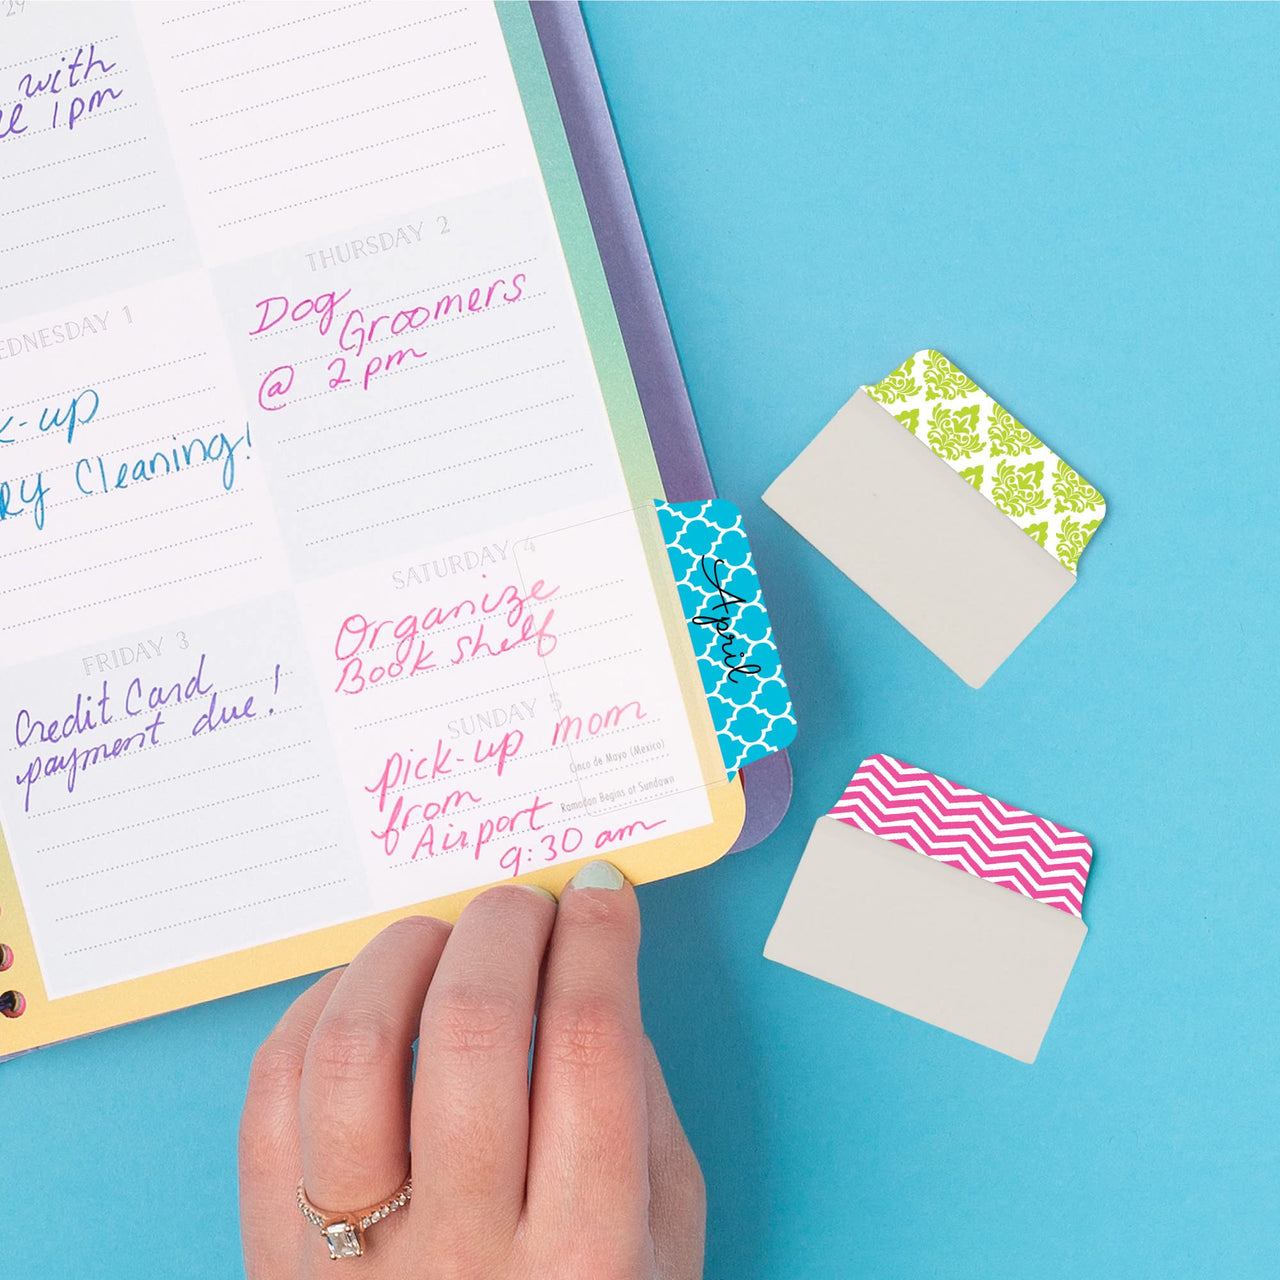 29
with
1pm
THURSDAY 2
Dog
Groomers
@ 2pm
EDNESDAY 1
k-up
RY Cleaning!
FRIDAY 3
Credit Card
payment due!
SATURDAY 4
Organize
Book Shelf
SUNDAY 5
pick-up mom
Cinco de Mayo (Mexico)
from
Ramadan Begins at Sundown
Airport
9:30 am
April